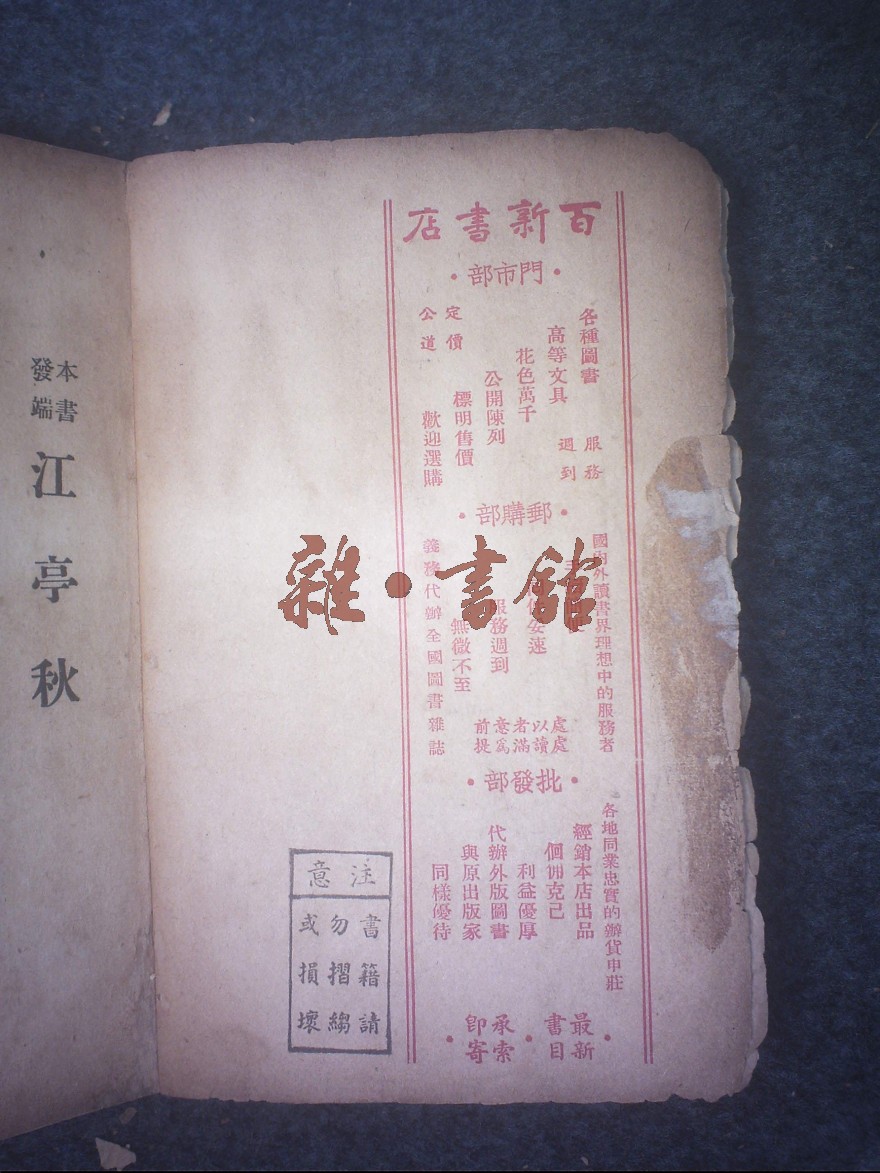 百新書店
·門市部·
各種圖書
高等文具
花色萬千
公開陳列
標明售價
歡迎選購
服務
週到
定價
公道
·郵購部·
國內外讀書界理想中的服務者
妥速
服務週到
無微不至
義務代辦全國圖書雜誌
處處
以讀
者滿
意為
前提
·批發部·
各地同業忠實的辦貨申莊
經銷本店出品
個佣克己
利益優厚
代辦外版圖書
與原出版家
同樣優待
·最新書目·
承索即寄·
注意
書籍請
勿摺縐
或損壞
本書
發端
江亭秋
雜·書館